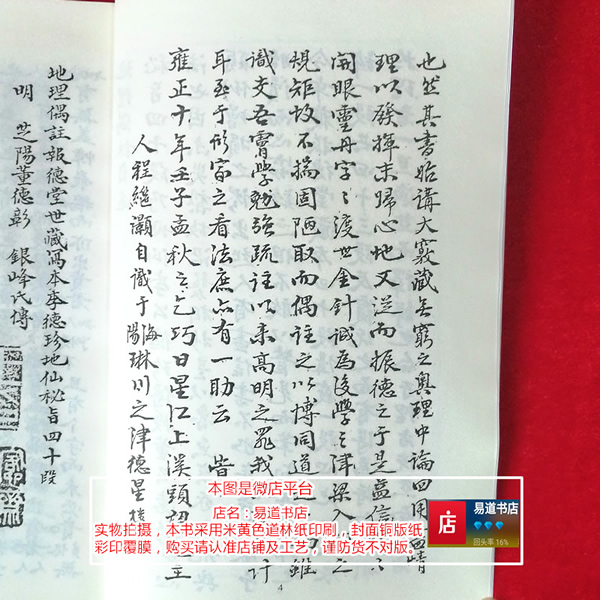 也然其书始讲大窍藏无穷之奥理中论四用
理以发挥末归心地又从而振德之于是益信
开眼灵丹字〻渡世金针诚为后学之津梁入
规矩故不揣固陋取而偶註之以博同道
识支吾霄学勉强疏註以来高明之罪我
耳至于形家之看法庶亦有一助云 皆
雍正十年壬子孟秋之乞巧日星江上溪头
人程继灝自识于海阳琳川之津德星楼
地理偶註報德堂世藏寫本李德珍地仙秘旨四十段
明 芝陽董德彰 銀峰氏傳
4
本图是微店平台
店名：易道书店
实物拍摄，本书采用米黄色道林纸印刷，封面铜版纸
彩印覆膜，购买请认准店铺及工艺，谨防货不对版。
店
易道书店
回头率 16%